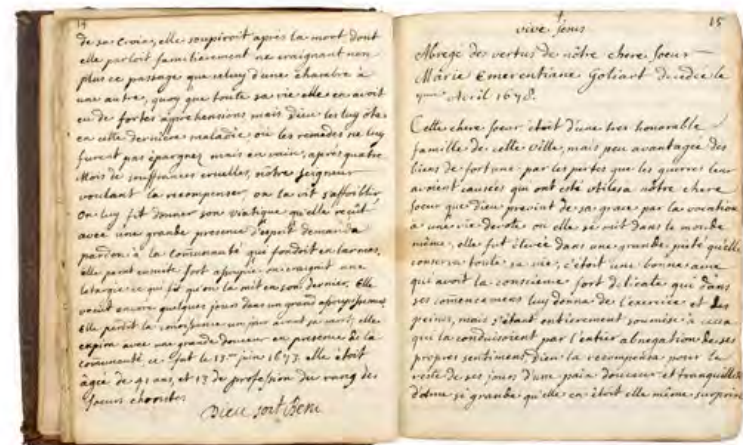 14
de sa Croix, elle soupiroit après la mort dont
elle parloit familierement ne craignant non
plus ce passage que celuy d'une chambre à
une autre, quoy que toute sa vie elle en avoit
eu de fortes aprehensions mais dieu les luy ôta
en cette derniere maladie où les remedes ne luy
furent pas épargnez mais en vain, après quatre
Mois de souffrances cruelles, nôtre seigneur
voulant la recompenser on la vit s'affoiblir
On luy fit donner son viatique qu'elle reçût
avec une grande presence d'esprit demanda
pardon à la Comunauté qui fondoit en larmes,
elle parut ensuite fort assoupie on craignit une
letargie ce qui fit qu'on la mit en son dernier. Elle
vécut encore quelques jours dans un grand assoupissement
Elle perdit la conoissence un jour avant sa mort; elle
expira avec une grande douceur en presence de la
comunauté ce fut le 13.me juin 1673. elle étoit
âgée de 91 ans, et 13 de profession du rang des
soeurs choristes
Dieu soit Beni
15
vive Jesus
Abregé de vertus de nôtre chere soeur
Màrie Emerentiane Goliart decedée le
Avril 1678.
Cette chere soeur étoit d'une tres honorable
famille de cette ville, mais peu avantagée des
biens de fortune par les pertes que les guerres leur
avoient causées qui ont esté utiles a nôtre chere
soeur que dieu prevint de sa grace par la vocation
à une vie devote ou elle se mit dans le monde
même, elle fut élevée dans une grande pieté qu'elle
conserva toute sa vie, c'étoit une bonne ame
qui avoit la conscience fort delicate qui dans
ses comencemens luy donna de l'exercice et des
peines, mais s'étant entierement soumise à ceux
qui la conduisoient par l'entier abnegation de ses
propres sentimens, dieu la recompensa pour le
reste de ses jours d'une paix douceur et tranquillité
d'ame si grande qu'elle en étoit elle même surprise